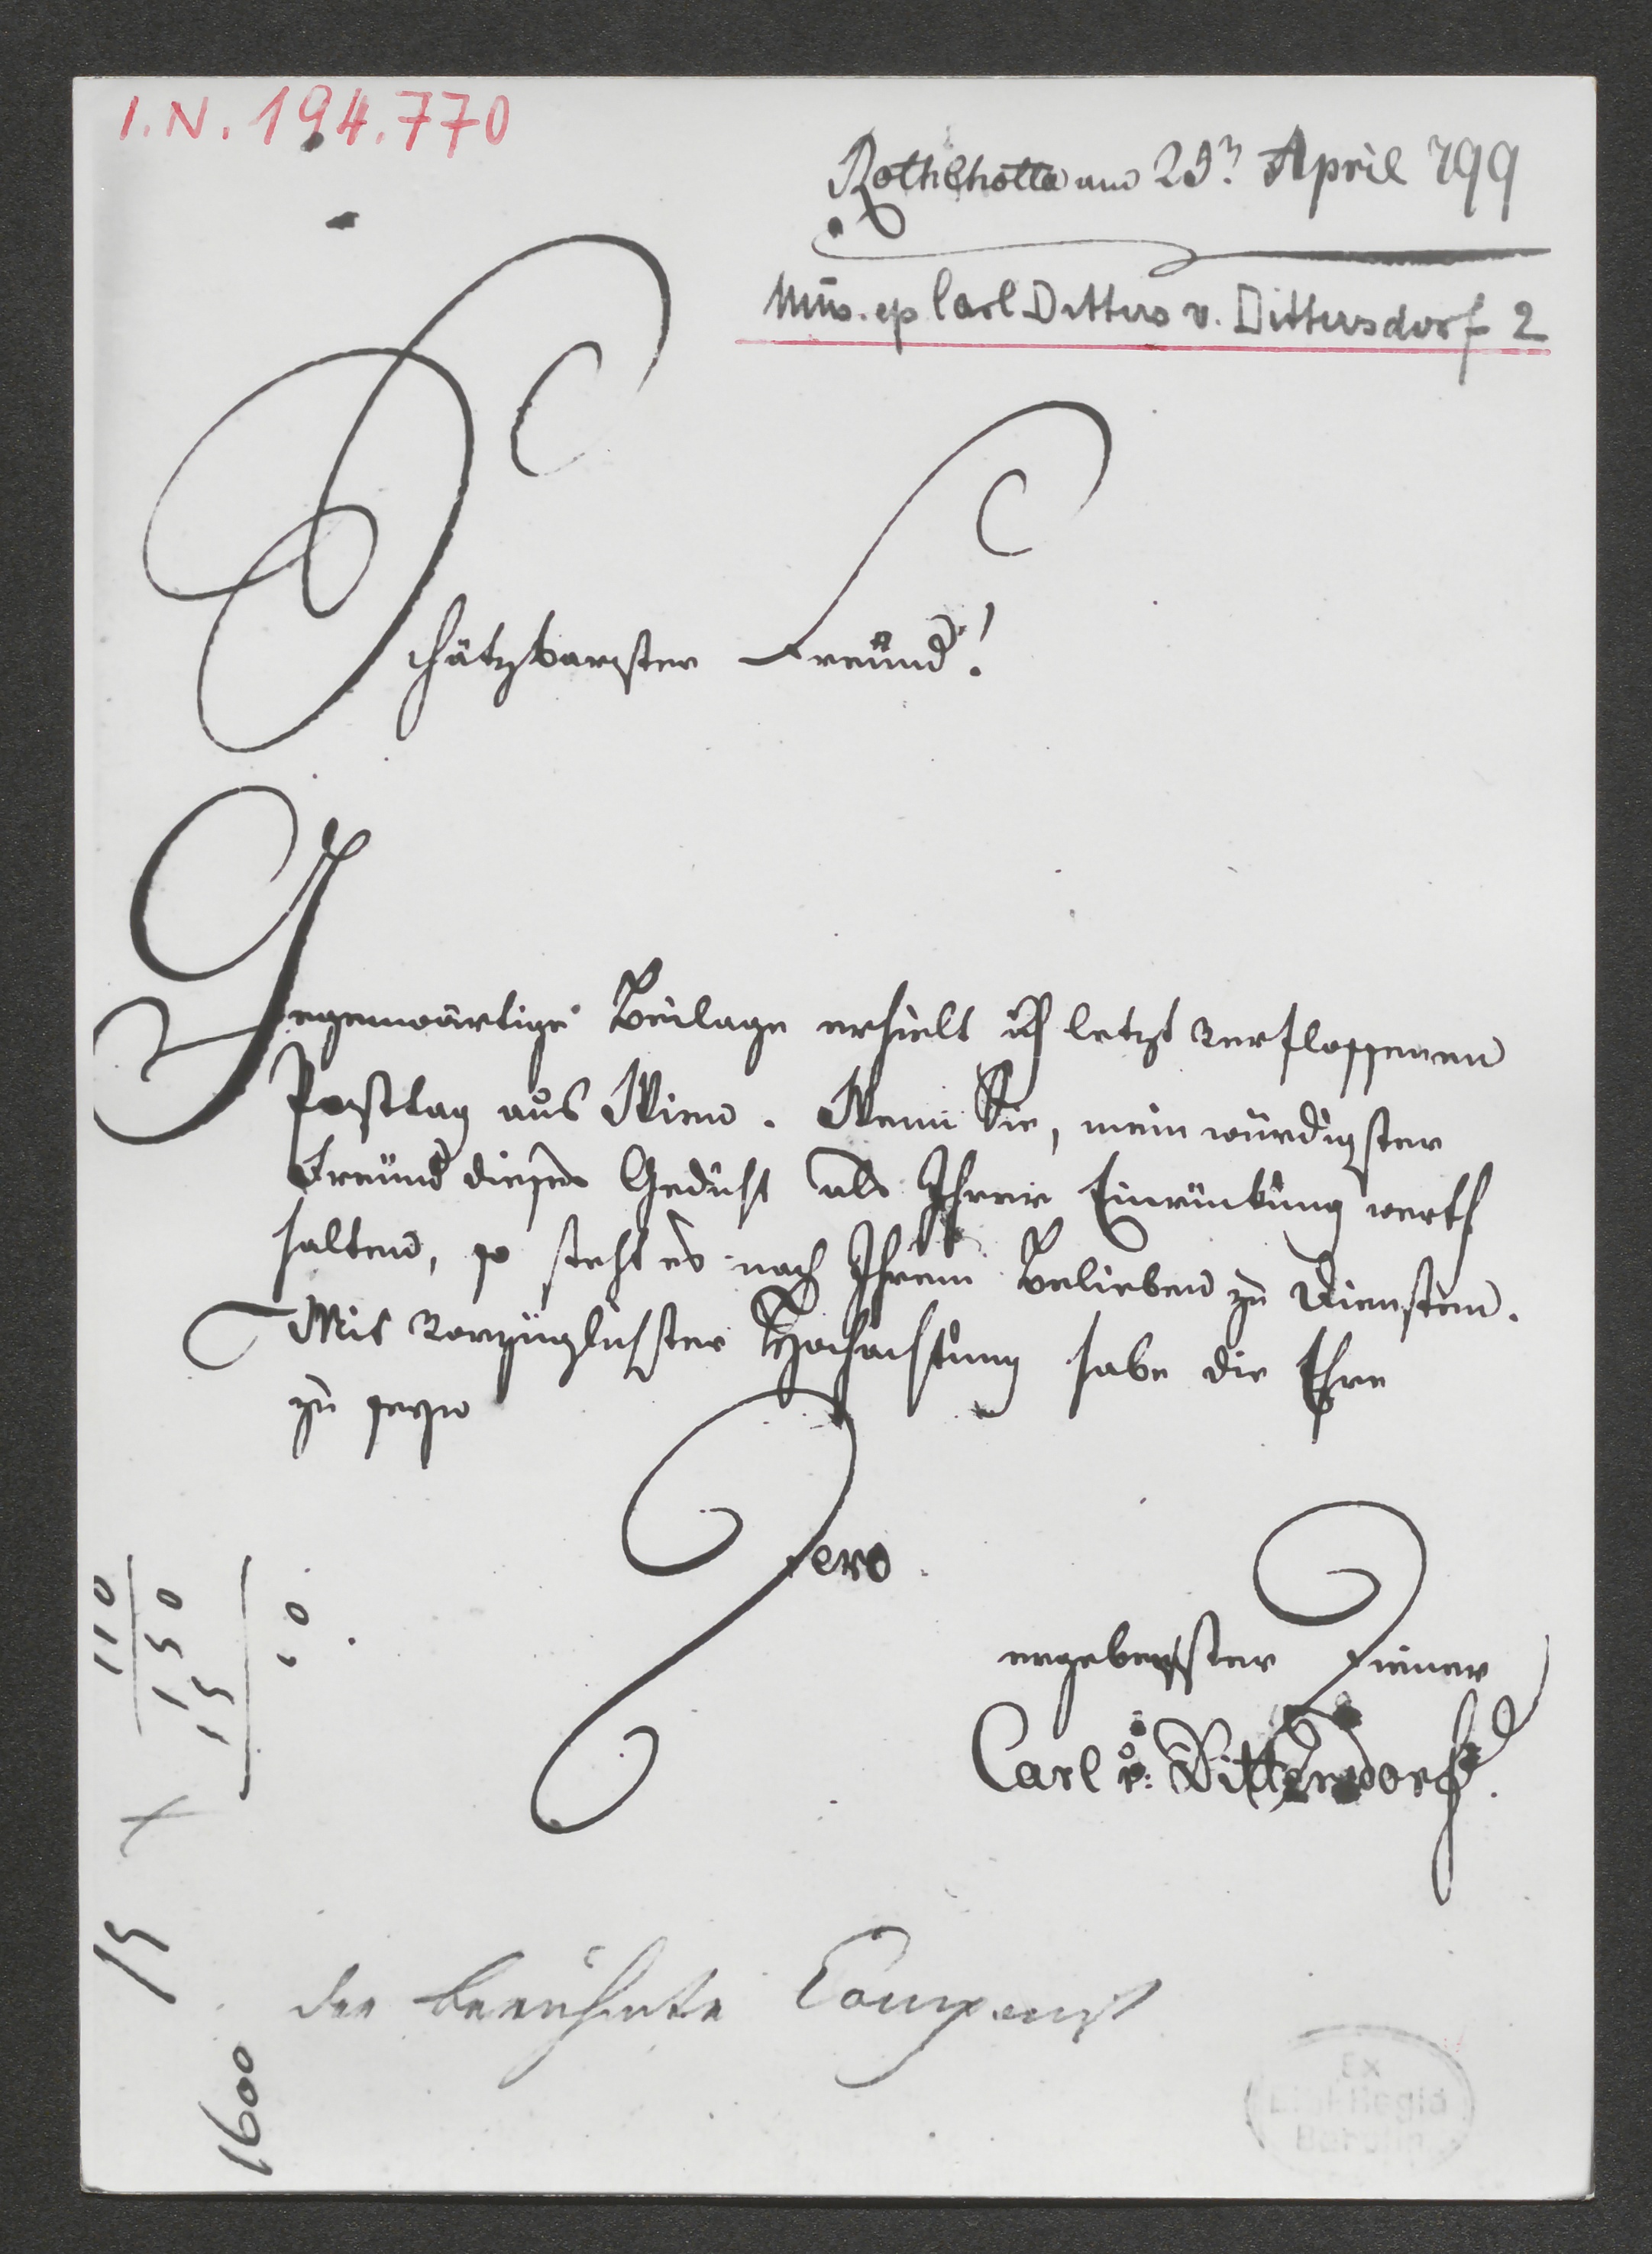 I.N. 194.770
Rothlhotta am 25n April 799
Mus. ep Carl Ditters v. Dittersdorf 2
Schätzbarster Freünd!
Gegenwärtige Beilage erhielt ich letzt verflossenen
Posttag aus Wien. Wenn Sie, mein würdigster
Freünd dieses Gedicht als Ihrer Einrückung werth
halten, so steht es nach Ihrem Belieben zu Diensten.
Mit vorzüglichster Hochachtung habe die Ehre
zu seyn
Dero
ergebenster Diener
Carl v: Dittersdorf
der berühmte Componist
110
150
15
10
15
1600
Ex
Biol Regia
Berolin